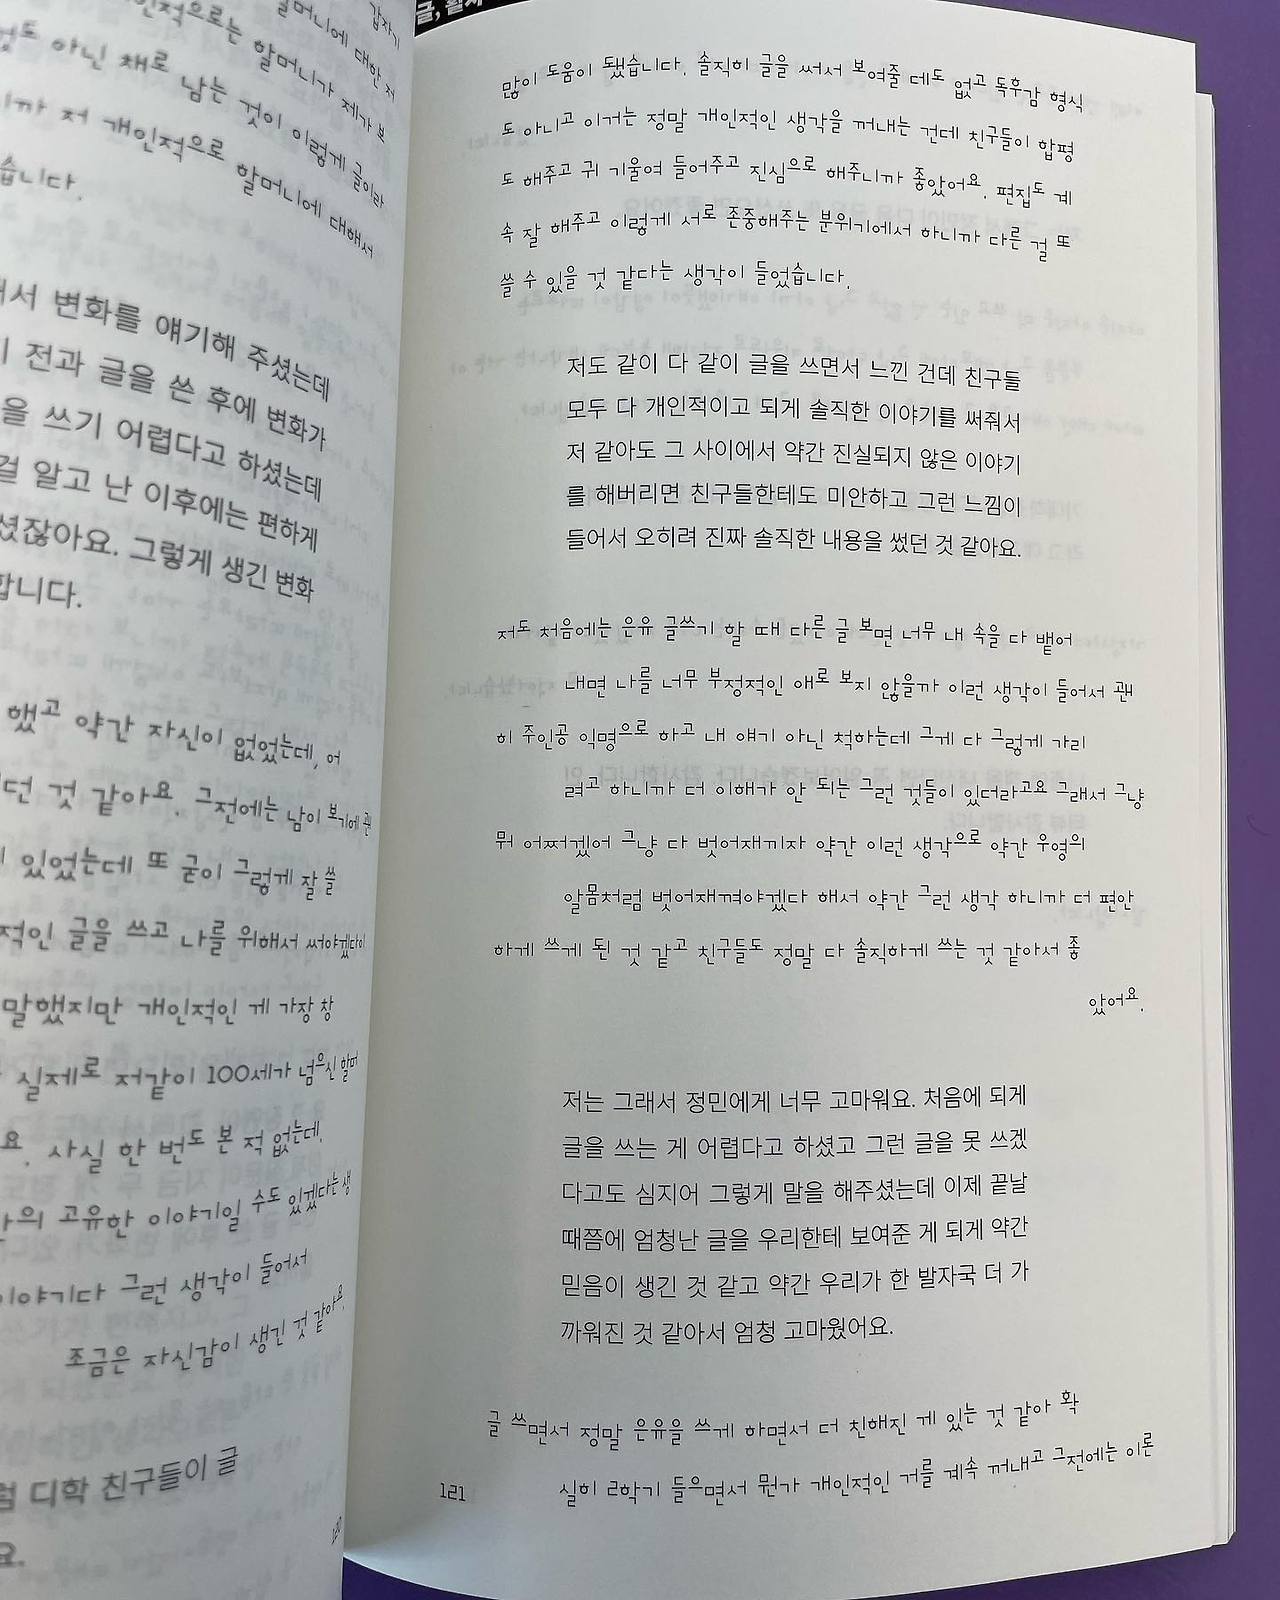 갑자기
할머니에 대한 저
인적으로는 할머니가 제가 보
것도 아닌 채로 남는 것이 이렇게 글이라
니까 저 개인적으로 할머니에 대해서
습니다.
해서 변화를 얘기해 주셨는데
기 전과 글을 쓴 후에 변화가
을 쓰기 어렵다고 하셨는데
걸 알고 난 이후에는 편하게
셨잖아요. 그렇게 생긴 변화
합니다.
했고 약간 자신이 없었는데, 어
던 것 같아요. 그전에는 남이 보기에 괜
있었는데 또 굳이 그렇게 잘 쓸
적인 글을 쓰고 나를 위해서 써야겠다이
말했지만 개인적인 게 가장 창
실제로 저같이 100세가 넘으신 할머
요. 사실 한 번도 본 적 없는데,
나의 고유한 이야기일 수도 있겠다는 생
이야기다 그런 생각이 들어서
조금은 자신감이 생긴 것 같아요.
럼 디학 친구들이 글
요.
120
글,
많이 도움이 됐습니다. 솔직히 글을 써서 보여줄 데도 없고 독후감 형식
도 아니고 이거는 정말 개인적인 생각을 꺼내는 건데 친구들이 합평
도 해주고 귀 기울여 들어주고 진심으로 해주니까 좋았어요. 편집도 계
속 잘 해주고 이렇게 서로 존중해주는 분위기에서 하니까 다른 걸 또
쓸 수 있을 것 같다는 생각이 들었습니다.
저도 같이 다 같이 글을 쓰면서 느낀 건데 친구들
모두 다 개인적이고 되게 솔직한 이야기를 써줘서
저 같아도 그 사이에서 약간 진실되지 않은 이야기
를 해버리면 친구들한테도 미안하고 그런 느낌이
들어서 오히려 진짜 솔직한 내용을 썼던 것 같아요.
저도 처음에는 은유 글쓰기 할 때 다른 글 보면 너무 내 속을 다 뱉어
내면 나를 너무 부정적인 애로 보지 않을까 이런 생각이 들어서 괜
히 주인공 익명으로 하고 내 얘기 아닌 척하는데 그게 다 그렇게 가리
려고 하니까 더 이해가 안 되는 그런 것들이 있더라고요 그래서 그냥
뭐 어쩌겠어 그냥 다 벗어재끼자 약간 이런 생각으로 약간 우영의
알몸처럼 벗어재껴야겠다 해서 약간 그런 생각 하니까 더 편안
하게 쓰게 된 것 같고 친구들도 정말 다 솔직하게 쓰는 것 같아서 좋
았어요.
저는 그래서 정민에게 너무 고마워요. 처음에 되게
글을 쓰는 게 어렵다고 하셨고 그런 글을 못 쓰겠
다고도 심지어 그렇게 말을 해주셨는데 이제 끝날
때쯤에 엄청난 글을 우리한테 보여준 게 되게 약간
믿음이 생긴 것 같고 약간 우리가 한 발자국 더 가
까워진 것 같아서 엄청 고마웠어요.
글 쓰면서 정말 은유을 쓰게 하면서 더 친해진 게 있는 것 같아 확
실히 2학기 들으면서 뭔가 개인적인 거를 계속 꺼내고 그전에는 이론
121